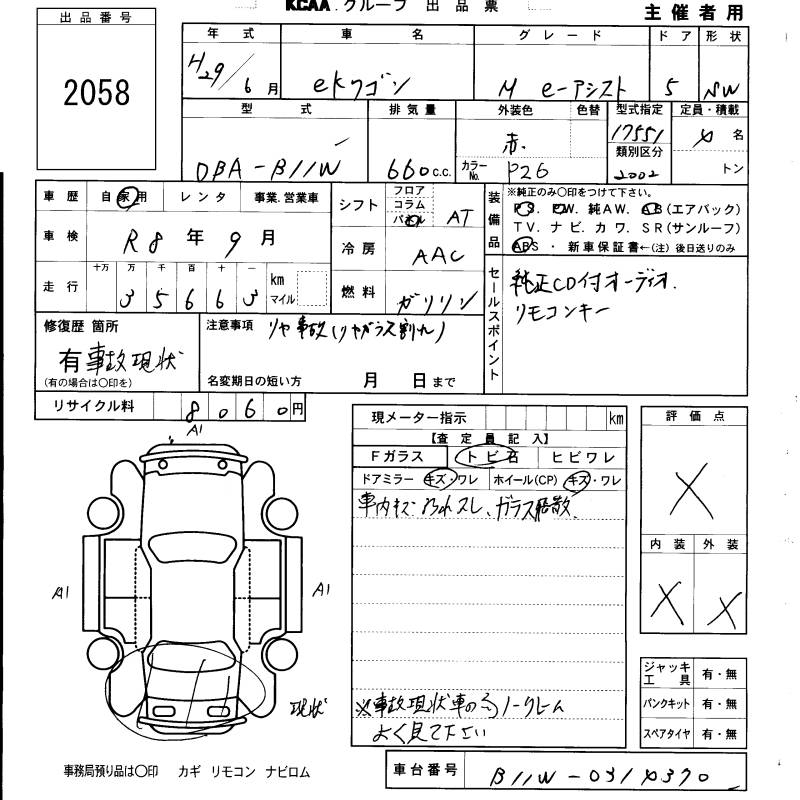 KCAA.グループ 出品票
主催者用
出品番号
2058
年式 車名 グレード ドア 形状
H29/6月 eKワゴン M e-アシスト 5 NW
型式 排気量 外装色 色替 型式指定 定員・積載
DBA-B11W 660c.c. 赤 17551 4名
類別区分
カラーNo. P26 2002 トン
車歴 自家用 レンタ 事業.営業車
シフト フロア コラム パネル AT
装備品 ※純正のみ○印をつけて下さい。
PS. PW. 純AW. AB(エアバック)
TV. ナビ. カワ. SR(サンルーフ)
ABS・新車保証書←(注)後日送りのみ
車検 R8年9月
冷房 AAC
走行 十万 万 千 百 十 一 km マイル
35663
燃料 ガソリン
セールスポイント
純正CD付オーディオ.
リモコンキー
修復歴 箇所
有 事故現状
(有の場合は○印を)
注意事項 リヤ事故(リヤガラス割れ)
名変期日の短い方 月 日まで
リサイクル料 8060円
現メーター指示 km
【査定員記入】
Fガラス トビ石 ヒビワレ
ドアミラー キズ・ワレ ホイール(CP) キズ・ワレ
車内キズ・汚れスレ、ガラス飛散
評価点
X
内装 外装
X X
A1
A1
A1
現状
※事故現状車の為ノークレーム
よく見て下さい
ジャッキ工具 有・無
パンクキット 有・無
スペアタイヤ 有・無
事務局預り品は○印 カギ リモコン ナビロム
車台番号 B11W-0314370